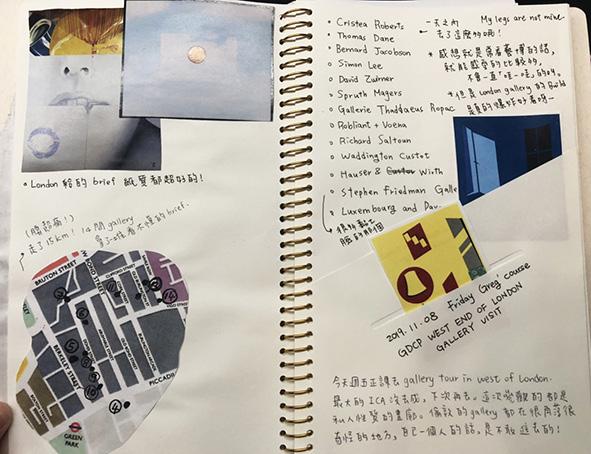 • London 給的 brief 紙質都超好的!
(腿超痛!)
走了15km! 14間gallery
拿了一堆看不懂的brief.
BRUTON STREET
BERKELEY STREET
PICCADI
GREEN PARK
Cristea Roberts
Thomas Dane
Bernard Jacobson
Simon Lee
David Zwirner
Spruth Magers
Gallerie Thaddaeus Ropac
Robliant + Voena
Richard Saltoun
Waddington Custot
Hauser & Wirth
Stephen Friedman Galle
Luxembourg and Day
一天之內 My legs are not mine.
去了這麼的啊!
* 感想就是常看藝博的話,
就能感受的比較的,
不會一直「哇~哇」的叫。
* 但是 london gallery 的
是真的爆炸好看呀~
2019.11.08 Friday Greg' course
GDCP WEST END OF LONDON
GALLERY VISIT
今天週五正課去 gallery tour in west of London.
最大的 ICA 沒去成,下次再去。這次參觀的都是
私人性質的畫廊。倫敦的gallery 都在很角落很
奇怪的地方,自己一個人的話,是不敢進去的!